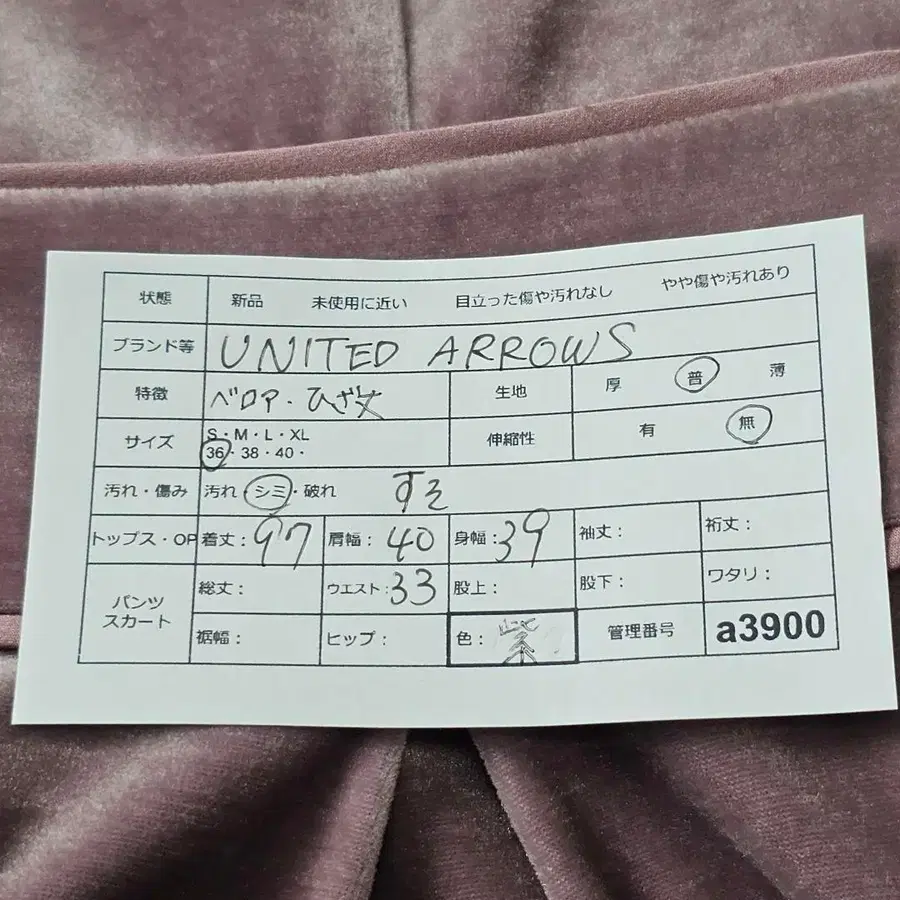 状態 新品 未使用に近い 目立った傷や汚れなし やや傷や汚れあり
ブランド等 UNITED ARROWS
特徴 ベロア・ひざ丈 生地 厚 普 薄
サイズ S・M・L・XL
36・38・40・ 伸縮性 有 無
汚れ・傷み 汚れ・シミ・破れ すそ
トップス・OP 着丈：97 肩幅：40 身幅：39 袖丈： 裄丈：
パンツ
スカート 総丈： ウエスト：33 股上： 股下： ワタリ：
裾幅： ヒップ： 色：紫 管理番号 a3900